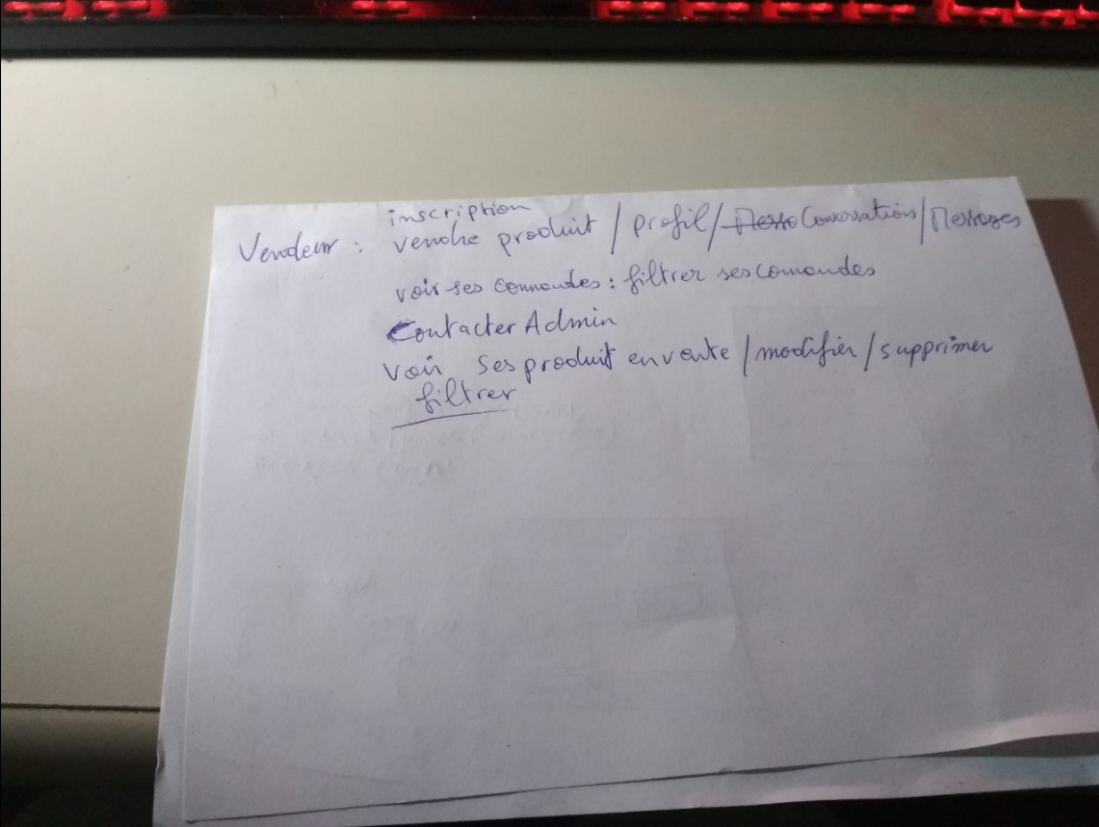 inscription
Vendeur : vendre produit / profil / Messa Conversations / Messages
voir ses commandes : filtrer ses comandes
Contacter Admin
voir ses produit en vente / modifier / supprimer
filtrer